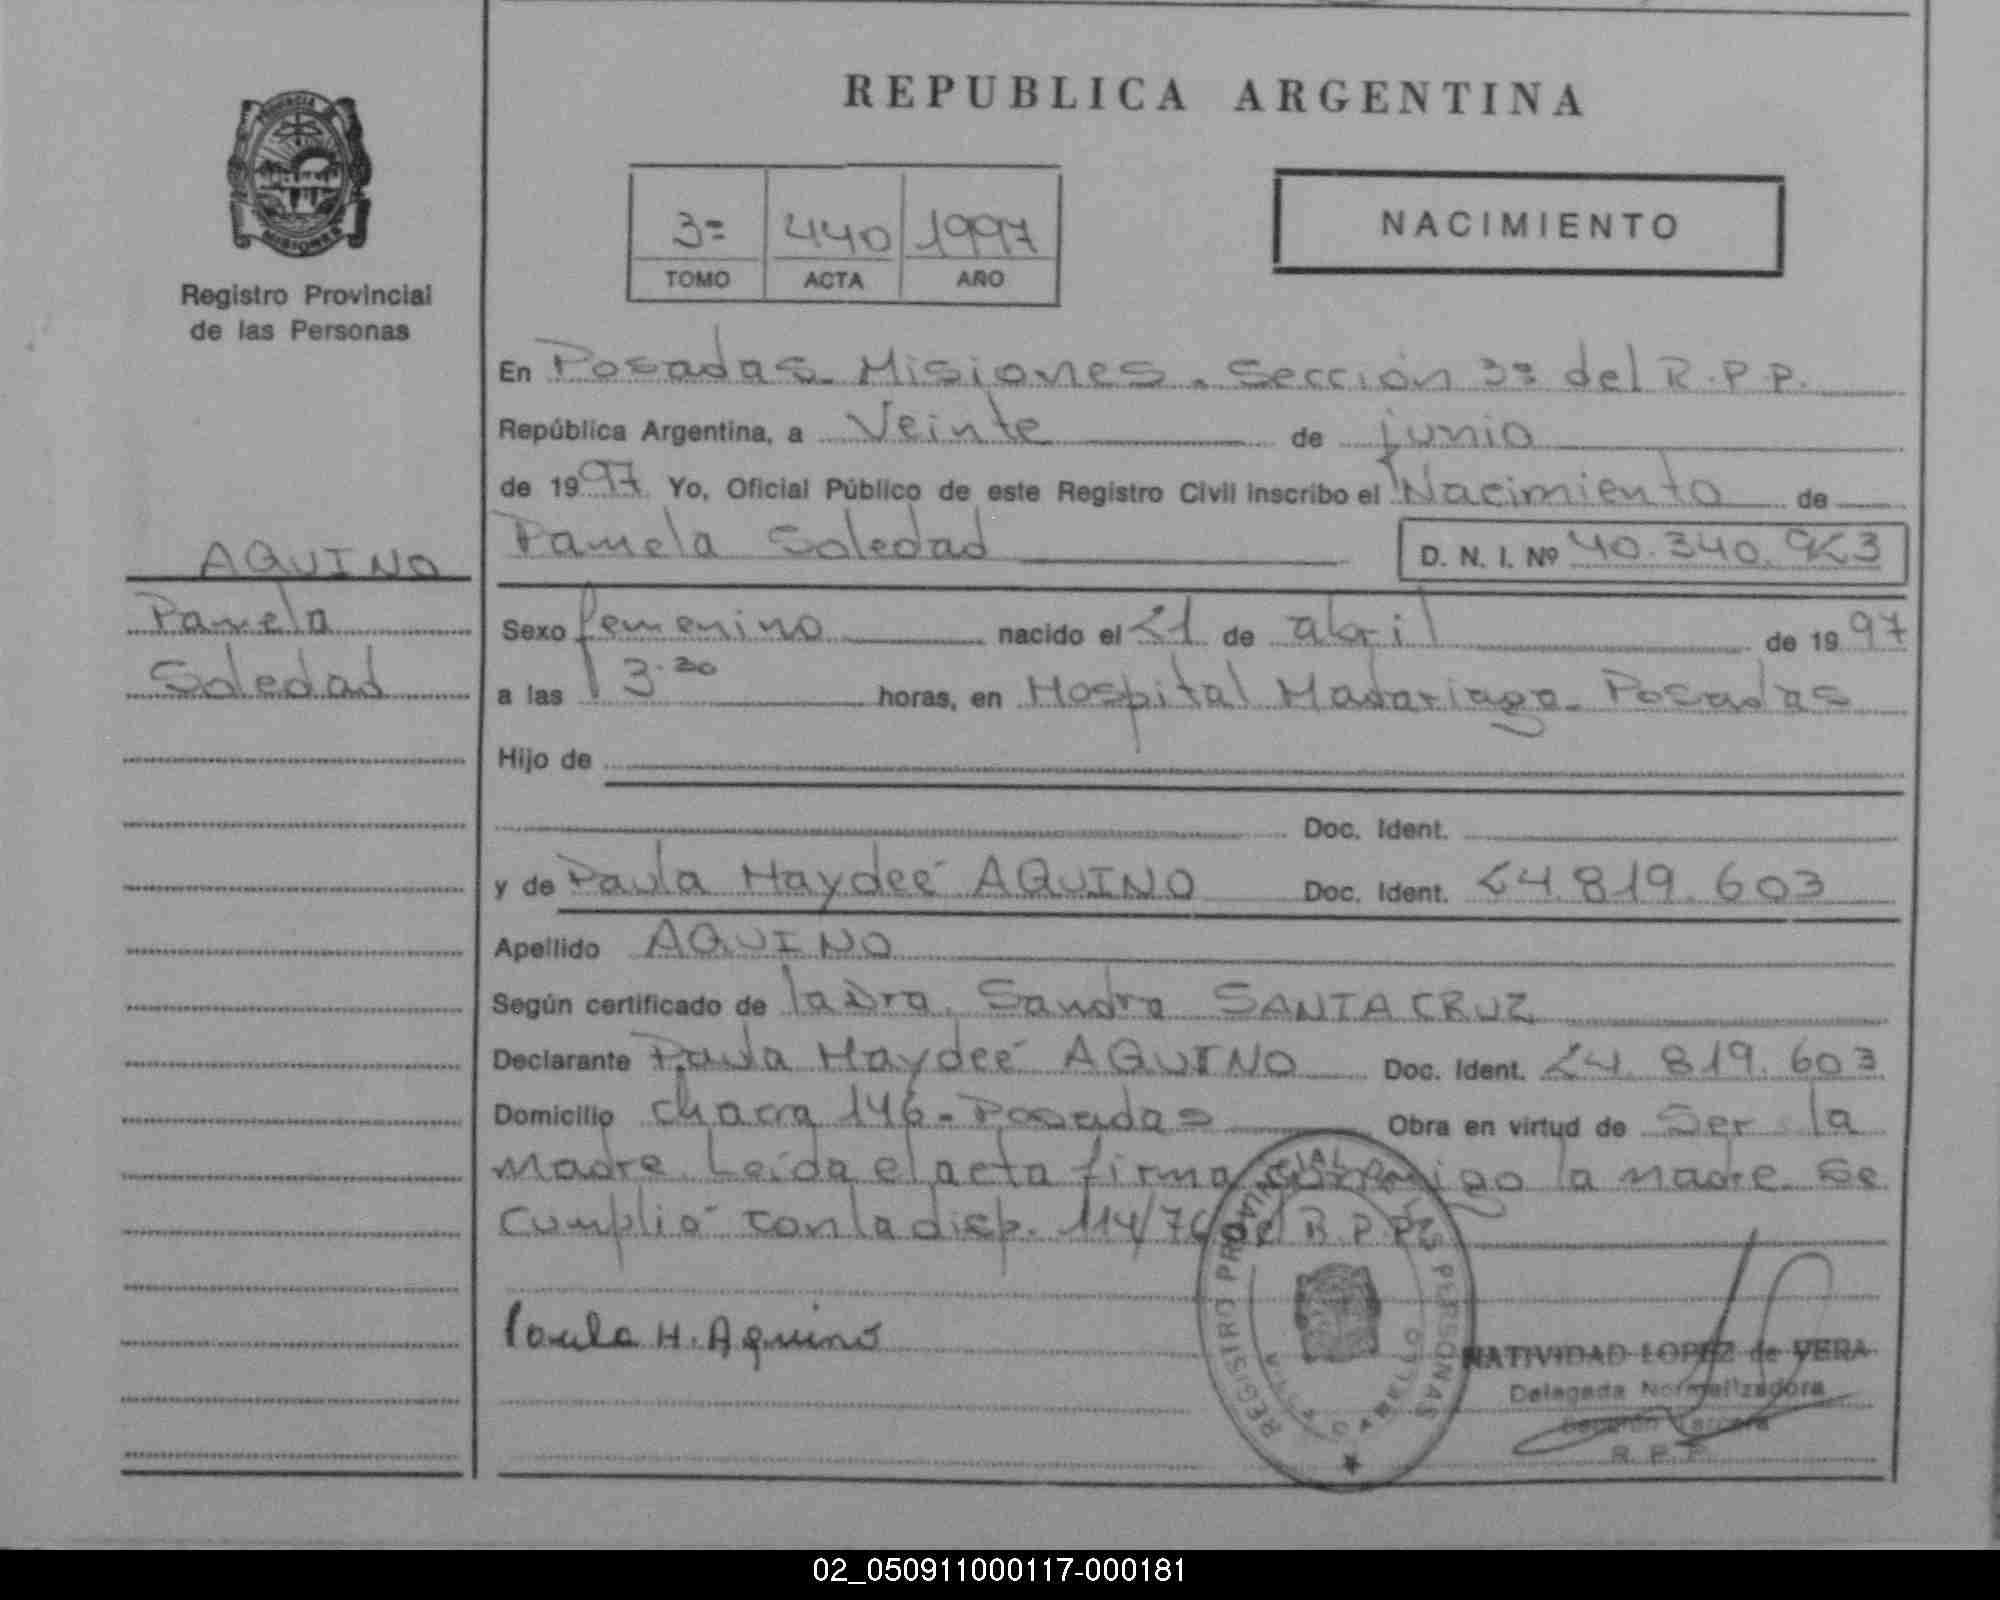 REPUBLICA ARGENTINA
PROVINCIA DE
MISIONES
Registro Provincial
de las Personas
3ª 440 1997
TOMO ACTA AÑO
NACIMIENTO
En Posadas. Misiones. Sección 3ª del R.P.P.
República Argentina, a Veinte de junio
de 1997 Yo, Oficial Público de este Registro Civil inscribo el Nacimiento de
Pamela Soledad D. N. I. Nº 40.340.923
AQUINO
Pamela
Soledad
Sexo femenino nacido el 21 de abril de 1997
a las 13.20 horas, en Hospital Madariaga. Posadas
Hijo de
Doc. Ident.
y de Paula Haydeé AQUINO Doc. Ident. 24.819.603
Apellido AQUINO
Según certificado de la Dra. Sandra SANTA CRUZ
Declarante Paula Haydeé AQUINO Doc. Ident. 24.819.603
Domicilio chacra 146 - Posadas Obra en virtud de Ser la
Madre. Leída el acta firma conmigo la madre. Se
Cumplió con la disp. 114/76 del R.P.P.
Paula H. Aquino
REGISTRO PROVINCIAL DE LAS PERSONAS
NATIVIDAD LOPEZ de VERA
Delegada Normalizadora
Sección Tercera
R. P. P.
02_050911000117-000181